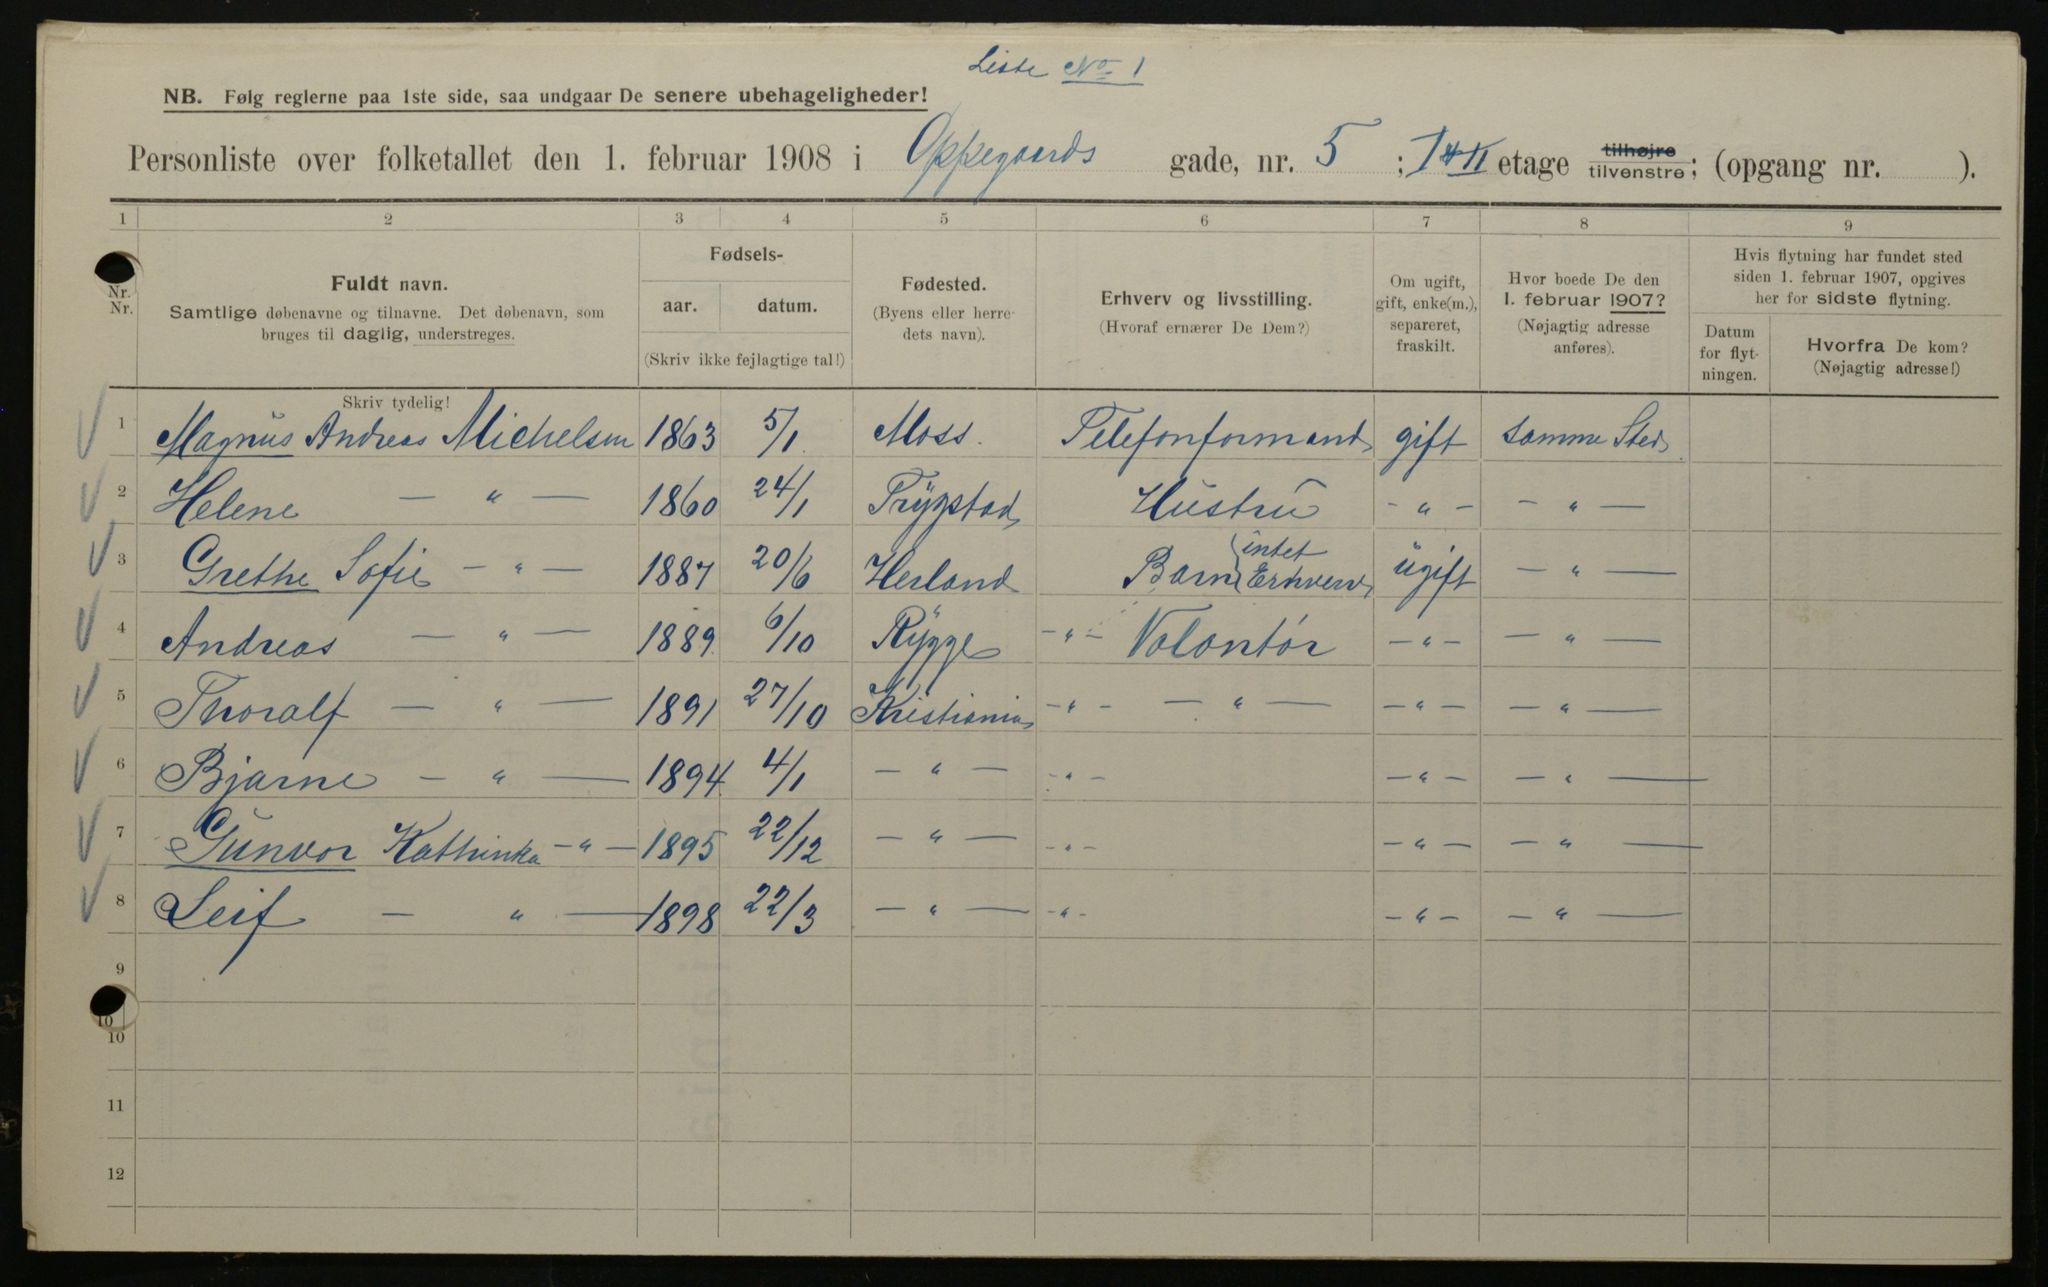 Liste No 1
NB. Følg reglerne paa 1ste side, saa undgaar De senere ubehageligheder!
Personliste over folketallet den 1. februar 1908 i Oppegaards gade, nr. 5 ; I & II etage tilhøjre tilvenstre; (opgang nr. ).
1 2 3 4 5 6 7 8 9
Nr. Nr.
Fuldt navn.
Samtlige døbenavne og tilnavne. Det døbenavn, som
bruges til daglig, understreges.
Skriv tydelig!
Fødsels-
aar. datum.
(Skriv ikke fejlagtige tal!)
Fødested.
(Byens eller herre-
dets navn).
Erhverv og livsstilling.
(Hvoraf ernærer De Dem?)
Om ugift,
gift, enke(m.),
separeret,
fraskilt.
Hvor boede De den
1. februar 1907?
(Nøjagtig adresse
anføres).
Hvis flytning har fundet sted
siden 1. februar 1907, opgives
her for sidste flytning.
Datum
for flyt-
ningen.
Hvorfra De kom?
(Nøjagtig adresse!)
1 Magnus Andreas Michelsen 1863 5/1 Moss. Telefonformand gift samme Sted
2 Helene — " — 1860 24/1 Trygstad Hustru - " - — " —
3 Grethe Sofie — " — 1887 20/6 Herland Barn { intet Erhverv ugift — " —
4 Andreas — " — 1889 6/10 Rygge - " - Volontør - " - — " —
5 Thoralf — " — 1891 27/10 Kristiania - " - — " — - " - — " —
6 Bjarne — " — 1894 4/1 — " — - " - - " - — " —
7 Gunvor Kathinka - " - 1895 22/12 — " — - " - - " - — " —
8 Leif — " — 1898 22/3 — " — - " - - " - — " —
9
10
10
11
12